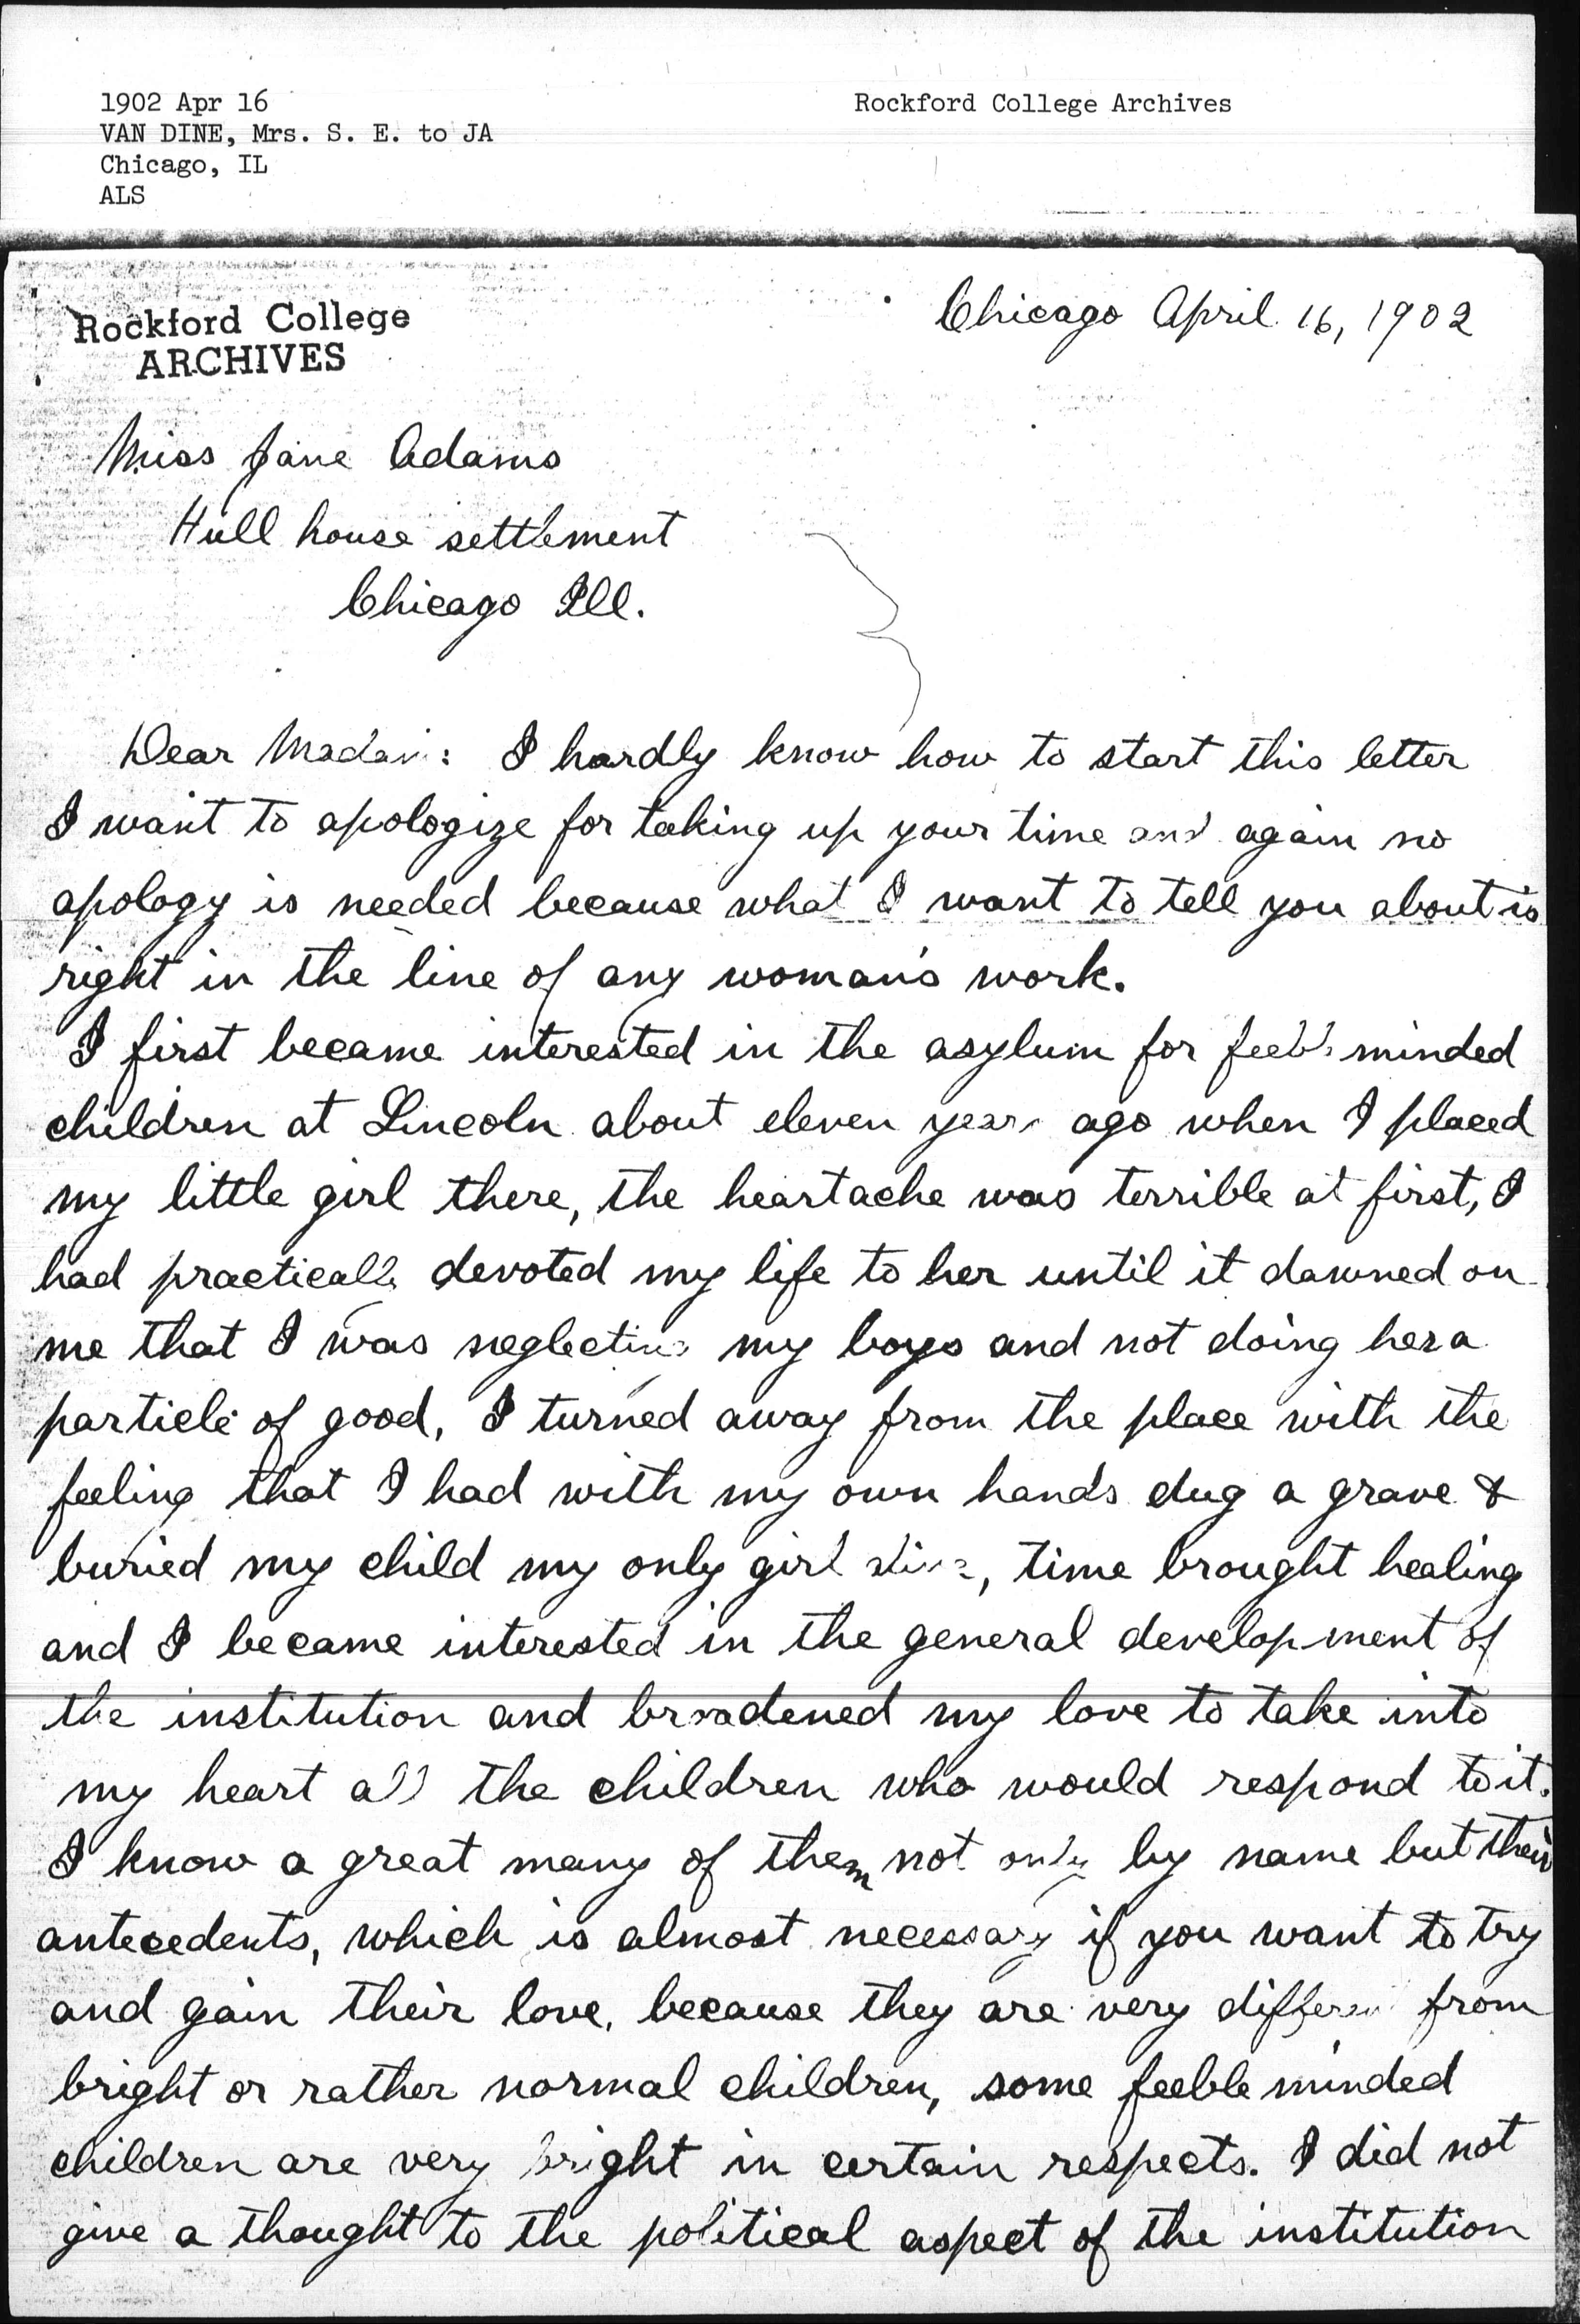 1902 Apr 16
VAN DINE, Mrs. S. E. to JA
Chicago, IL
ALS
Rockford College Archives
Rockford College
ARCHIVES
Chicago April 16, 1902
Miss Jane Adams
Hull house settlement
Chicago Ill.
Dear Madam: I hardly know how to start this letter
I want to apologize for taking up your time and again no
apology is needed because what I want to tell you about is
right in the line of any woman's work.
I first became interested in the asylum for feeble minded
children at Lincoln about eleven years ago when I placed
my little girl there, the heartache was terrible at first, I
had practically devoted my life to her until it dawned on
me that I was neglecting my boys and not doing her a
particle of good, I turned away from the place with the
feeling that I had with my own hands dug a grave &
buried my child my only girl alive, time brought healing
and I became interested in the general development of
the institution and broadened my love to take into
my heart all the children who would respond to it.
I know a great many of them not only by name but their
antecedents, which is almost necessary if you want to try
and gain their love, because they are very different from
bright or rather normal children, some feeble minded
children are very bright in certain respects. I did not
give a thought to the political aspect of the institution